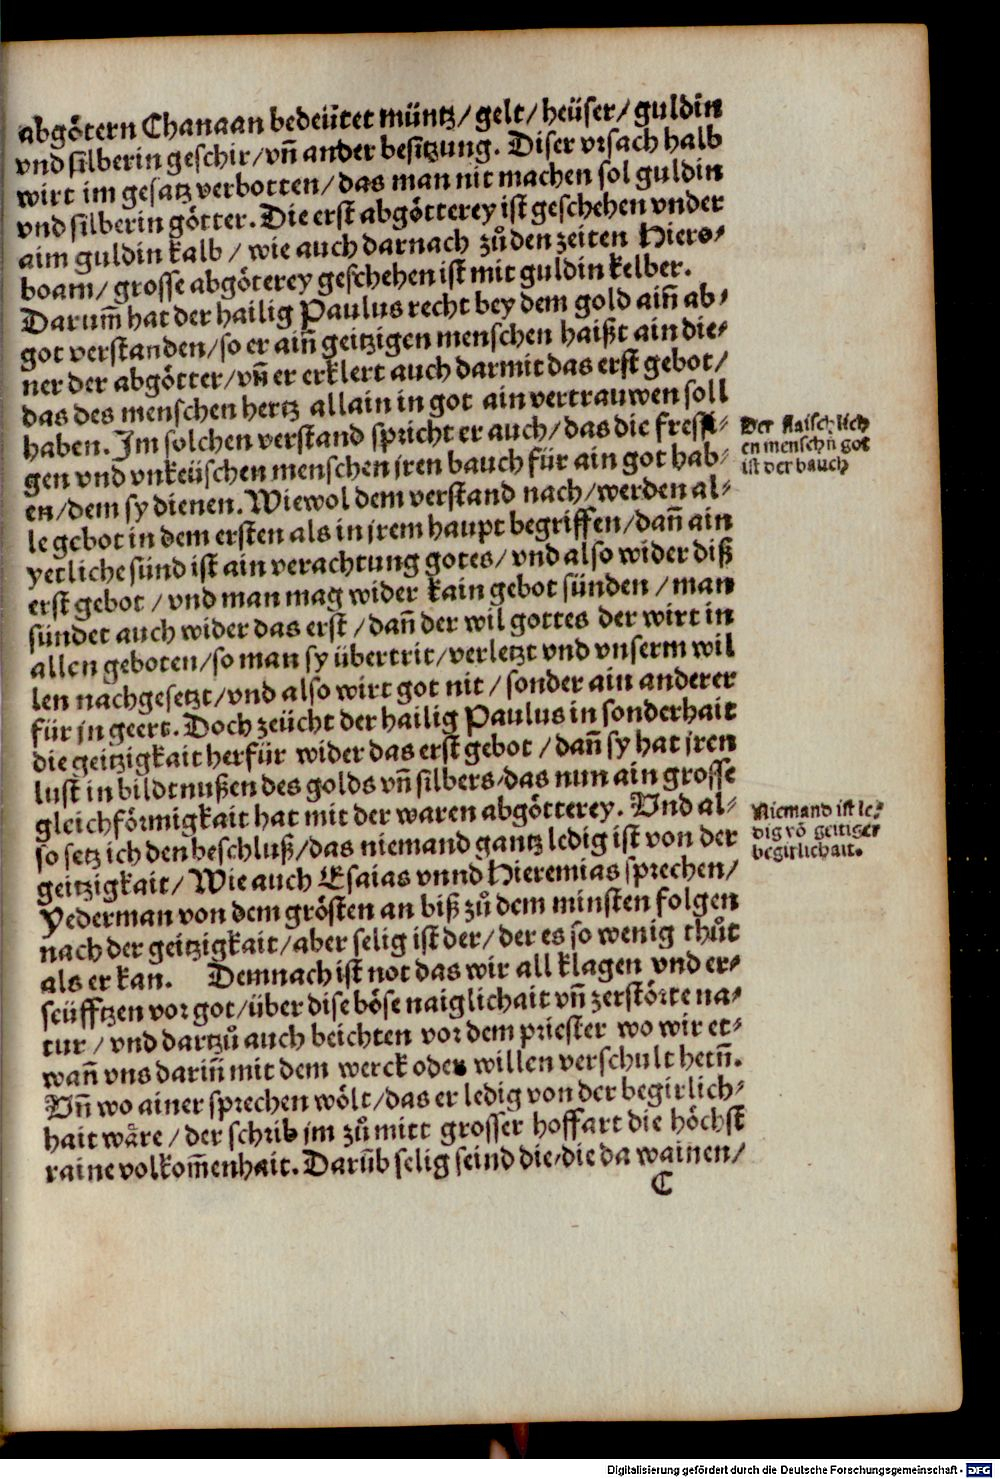 abgoͤtern Chanaan bedeütet müntz/ gelt/ heüser/ guldin
vnd silberin geschir/ vn̄ ander besitzung. Diser vrsach halb
wirt im gesatz verbotten/ das man nit machen sol guldin
vnd silberin goͤtter. Die erst abgoͤtterey ist geschehen vnder
aim guldin kalb / wie auch darnach zuͦ den zeiten Hiero-
boam/ grosse abgoͤterey geschehen ist mit guldin kelber.
Darum̄ hat der hailig Paulus recht bey dem gold ain̄ ab-
got verstanden/ so er ain̄ geitzigen menschen haißt ain die-
ner der abgoͤtter/ vn̄ er erklert auch darmit das erst gebot/
das des menschen hertz allain in got ain vertrauwen soll
haben. Im solchen verstand spricht er auch/ das die fressi-
gen vnd vnkeüschen menschen jren bauch für ain got hab-
en/ dem sy dienen. Wiewol dem verstand nach/ werden al-
le gebot in dem ersten als in jrem haupt begriffen/ dan̄ ain
yetliche sünd ist ain verachtung gotes/ vnd also wider diß
erst gebot / vnd man mag wider kain gebot sünden / man
sündet auch wider das erst / dan̄ der wil gottes der wirt in
allen geboten/ so man sy übertrit/ verletzt vnd vnserm wil
len nachgesetzt/ vnd also wirt got nit / sonder ain anderer
für jn geert. Doch zeücht der hailig Paulus in sonderhait
die geitzigkait herfür wider das erst gebot / dan̄ sy hat jren
lust in bildtnußen des golds vn̄ silbers/ das nun ain grosse
gleichfoͤrmigkait hat mit der waren abgoͤtterey. Vnd al-
so setz ich den beschluß/ das niemand gantz ledig ist von der
geitzigkait/ Wie auch Esaias vnnd Hieremias sprechen/
Yederman von dem groͤsten an biß zuͦ dem minsten folgen
nach der geitzigkait/ aber selig ist der/ der es so wenig thuͦt
als er kan. Demnach ist not das wir all klagen vnd er-
seüfftzen vor got/ über dise boͤse naiglichait vn̄ zerstoͤrte na-
tur / vnd dartzuͦ auch beichten vor dem priester wo wir et-
wan̄ vns darin̄ mit dem werck oder willen verschult hetn̄.
Vn̄ wo ainer sprechen woͤlt/ das er ledig von der begirlich-
hait waͤre / der schrib jm zuͦ mitt grosser hoffart die hoͤchst
raine volkom̄enhait. Darūb selig seind die/ die da wainen/
C
Der flaischlich
en menschn̄ got
ist der bauch
Niemand ist le-
dig vō geitiger
begirlichait.
Digitalisierung gefördert durch die Deutsche Forschungsgemeinschaft - DFG